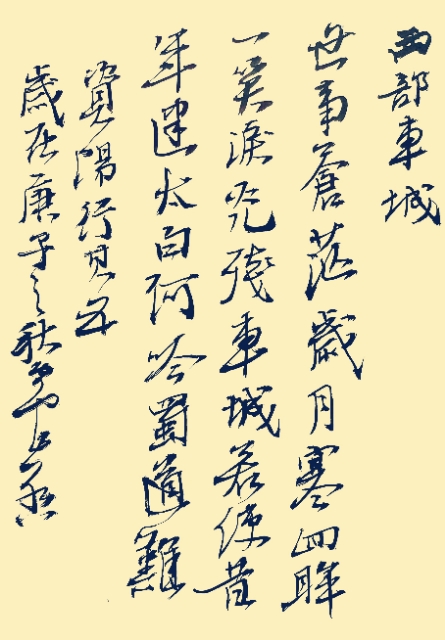 西部車城
世事蒼茫歲月寒四眸
一笑淚光殘車城若使昔
年逢太白何吟蜀道難
資陽行見
歲在庚子之秋